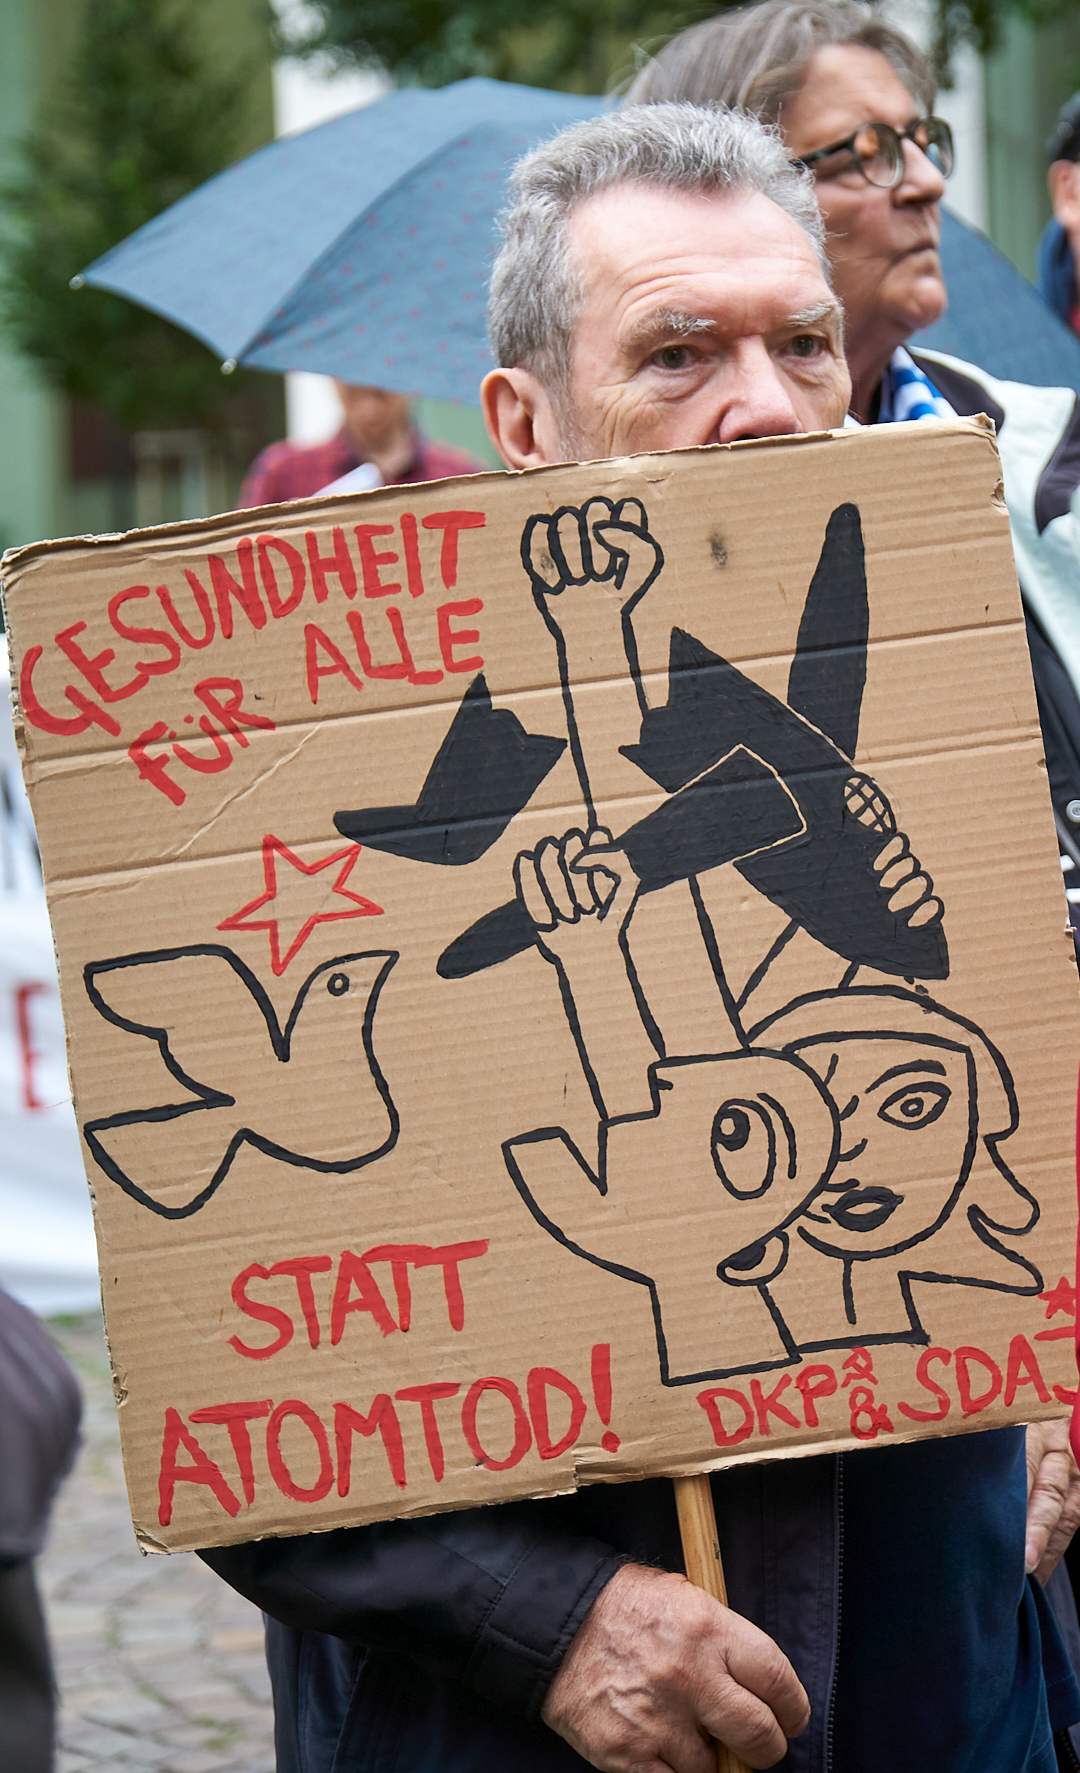 GESUNDHEIT
FÜR ALLE
STATT
ATOMTOD!
DKP & SDAJ